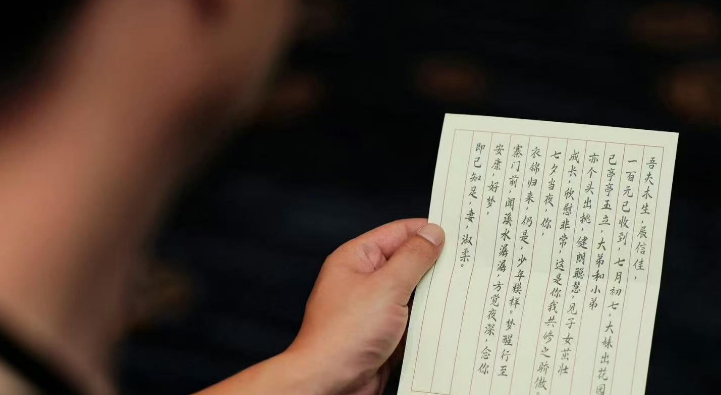 吾夫木生，展信佳，
一百元已收到，七月初七，大妹出花园
已亭亭玉立，大弟和小弟
亦个头出挑，健朗聪慧，见子女茁壮
成长，欣慰非常，这是你我共修之骄傲。
七夕当夜，你
衣锦归来，仍是，少年模样。梦醒行至
寨门前，闻溪水潺潺，方觉夜深，念你
安康，好梦，
即已知足，妻，淑柔。